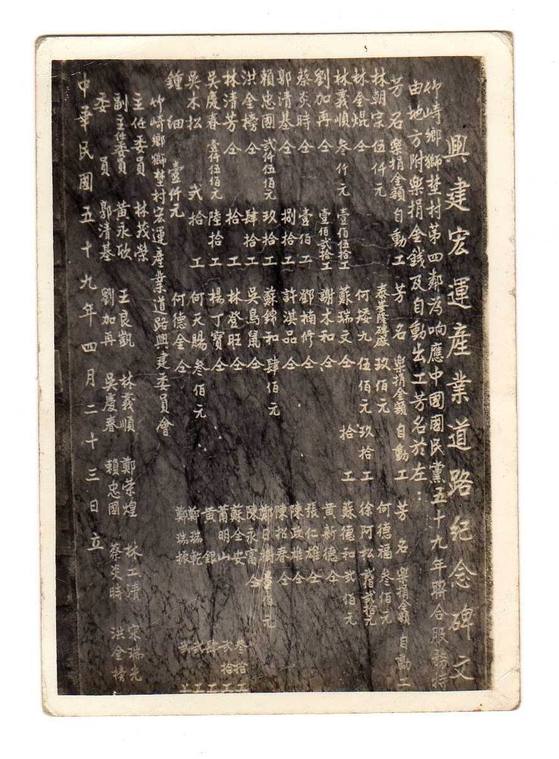 興建宏運產業道路紀念碑文
竹崎鄉獅埜村第四鄰為响應中國國民黨五十九年聯合服務特
由地方附樂捐金錢及自動出工芳名於左：
芳名 樂捐金額 自動工 芳名 樂捐金額 自動工 芳名 樂捐金額 自動工
林朝宗 伍仟元 玖佰元 何德福 叁佰元
林金焜 仝 壹佰伍拾工 何矮九 伍佰元 玖拾工 徐阿松 貳拾元
林義順 叁仟元 壹佰貳拾工 蘇瑞文 仝 拾工 蘇德和 貳佰元
劉加再 仝 壹佰工 謝木和 仝 黃新德 仝
蔡炎時 仝 鄧楠修 仝 張仁雄 仝
郭清基 仝 捌拾工 許淇品 仝 陳政雄 仝
賴忠國 貳仟伍佰元 玖拾工 蘇錦和 肆佰元 陳招春 仝
洪金榜 仝 肆拾工 吳鳥鼠 仝 鄭日樹 壹佰元
林清芳 仝 拾工 林登旺 仝 陳永富 仝
吳慶春 壹仟伍佰元 陸拾工 楊丁寳 仝 蘇全安 叁拾工
吳木松 貳拾工 何天賜 叁佰元 蕭明山 貳拾工
鍾細 壹仟元 何德金 仝 黃銀
鄭瑞乾 貳工
鄭瑞棟
竹崎鄉獅埜村宏運產業道路興建委員會
主任委員 林茂榮
副主任委員 黃永欽 王良凱 林義順 鄭榮煌 林工清 宋瑞元
委員 郭清基 劉加再 吳慶春 賴忠國 蔡炎時 洪金榜
中華民國五十九年四月二十三日立